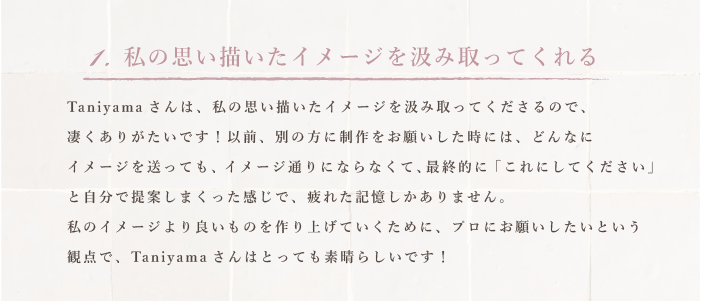 1. 私の思い描いたイメージを汲み取ってくれる
Taniyama さんは、私の思い描いたイメージを汲み取ってくださるので、
凄くありがたいです！以前、別の方に制作をお願いした時には、どんなに
イメージを送っても、イメージ通りにならなくて、最終的に「これにしてください」
と自分で提案しまくった感じで、疲れた記憶しかありません。
私のイメージより良いものを作り上げていくために、プロにお願いしたいという
観点で、Taniyama さんはとっても素晴らしいです！